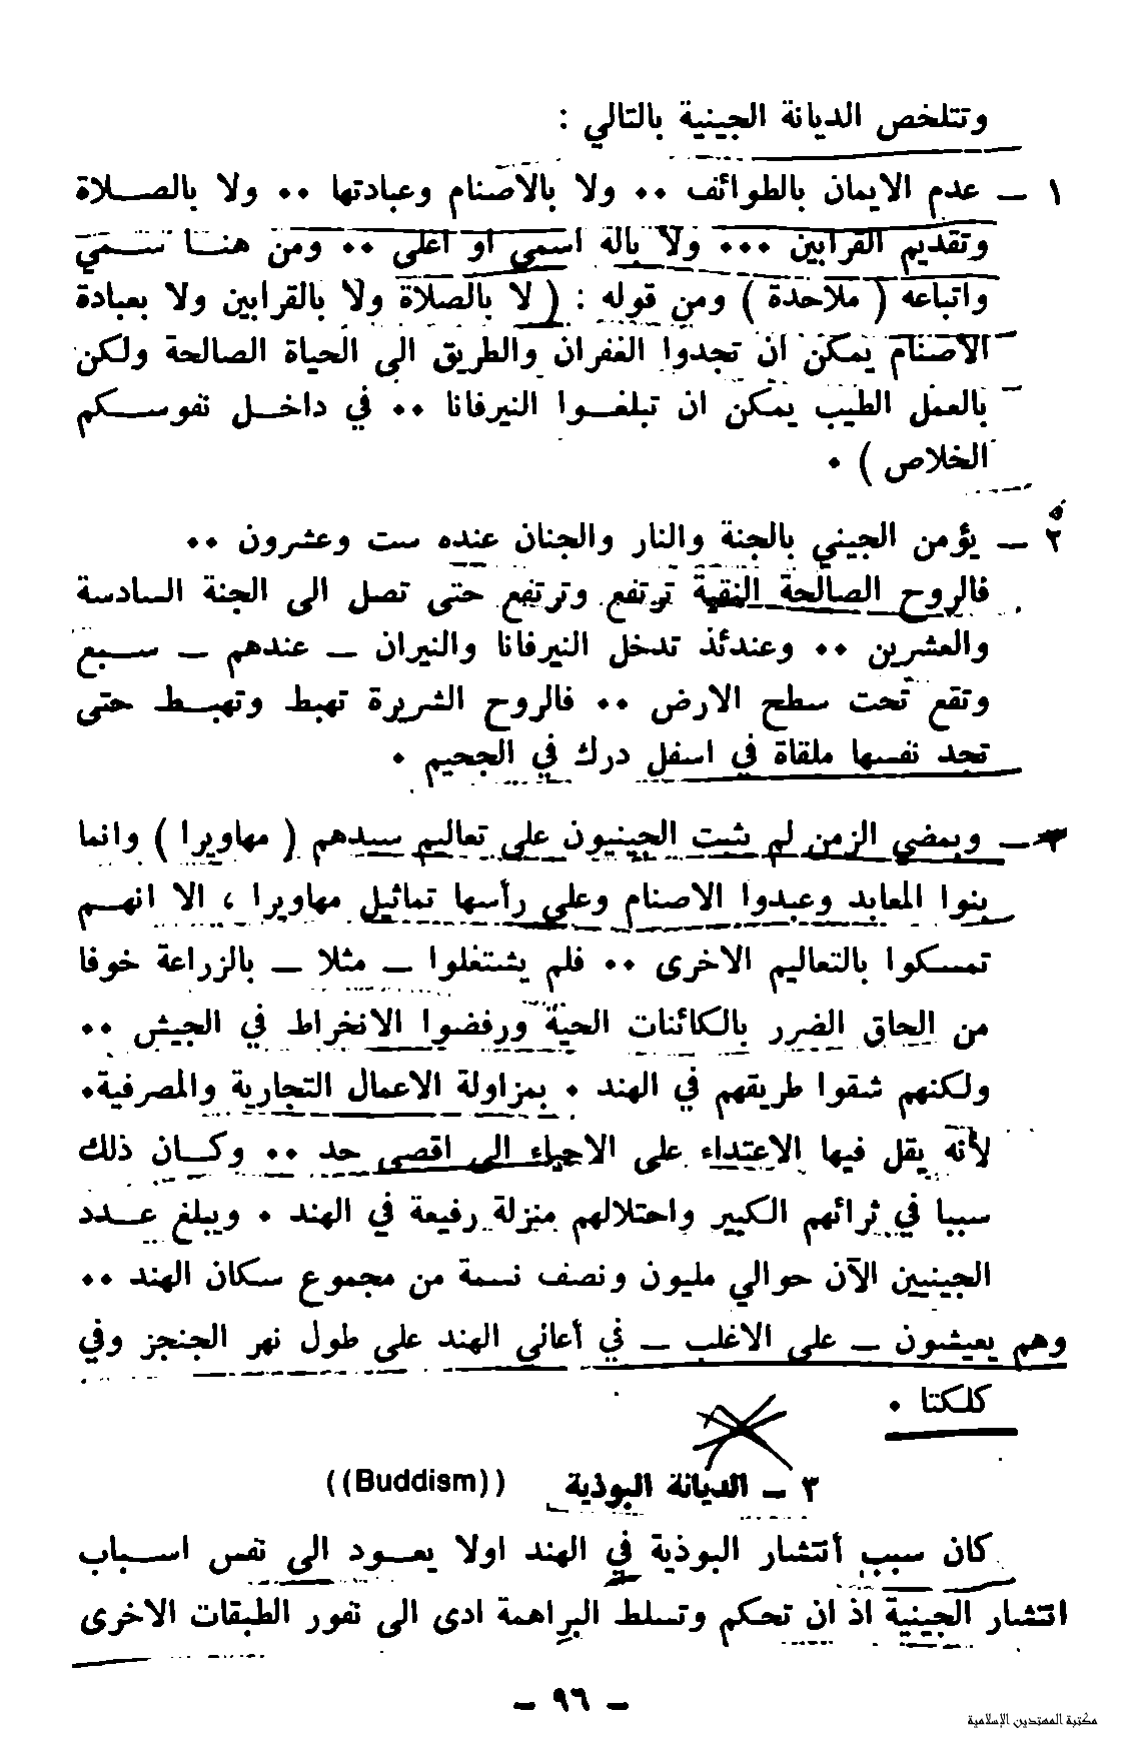 وتتلخص الديانة الجينية بالتالي :
١ ــ عدم الايمان بالطوائف ٠٠ ولا بالاصنام وعبادتها ٠٠ ولا بالصــلاة
وتقديم القرابين ٠٠٠ ولا باله اسمى او أعلى ٠٠ ومن هنــا سـمي
واتباعه ( ملاحدة ) ومن قوله : ( لا بالصلاة ولا بالقرابين ولا بعبادة
الاصنام يمكن ان تجدوا الغفران والطريق الى الحياة الصالحة ولكن
بالعمل الطيب يمكن ان تبلغـوا النيرفانا ٠٠ في داخـل نفوسـكم
الخلاص ) ٠
٢ ــ يؤمن الجيني بالجنة والنار والجنان عنده ست وعشرون ٠٠
فالروح الصالحة النقية ترتفع وترتفع حتى تصل الى الجنة السادسة
والعشرين ٠٠ وعندئذ تدخل النيرفانا والنيران ــ عندهم ــ سـبع
وتقع تحت سطح الارض ٠٠ فالروح الشريرة تهبط وتهبـط حتى
تجد نفسها ملقاة في اسفل درك في الجحيم ٠
٣ ــ وبمضي الزمن لم يثبت الجينيون على تعاليم سيدهم ( مهاويرا ) وانما
بنوا المعابد وعبدوا الاصنام وعلى رأسها تماثيل مهاويرا ، الا انهـم
تمسكوا بالتعاليم الاخرى ٠٠ فلم يشتغلوا ــ مثلا ــ بالزراعة خوفا
من الحاق الضرر بالكائنات الحية ورفضوا الانخراط في الجيش ٠٠
ولكنهم شقوا طريقهم في الهند ٠ بمزاولة الاعمال التجارية والمصرفية٠
لأنه يقل فيها الاعتداء على الاحياء الى اقصى حد ٠٠ وكـان ذلك
سببا في ثرائهم الكبير واحتلالهم منزلة رفيعة في الهند ٠ ويبلغ عـدد
الجينيين الآن حوالي مليون ونصف نسمة من مجموع سكان الهند ٠٠
وهم يعيشون ــ على الاغلب ــ في أعالي الهند على طول نهر الجنجز وفي
كلكتا ٠
٣ ــ الديانة البوذية ((Buddism))
كان سبب أنتشار البوذية في الهند اولا يعـود الى نفس اسـباب
انتشار الجينية اذ ان تحكم وتسلط البراهمة ادى الى نفور الطبقات الاخرى
ــ ٩٦ ــ
مكتبة المهتدين الإسلامية